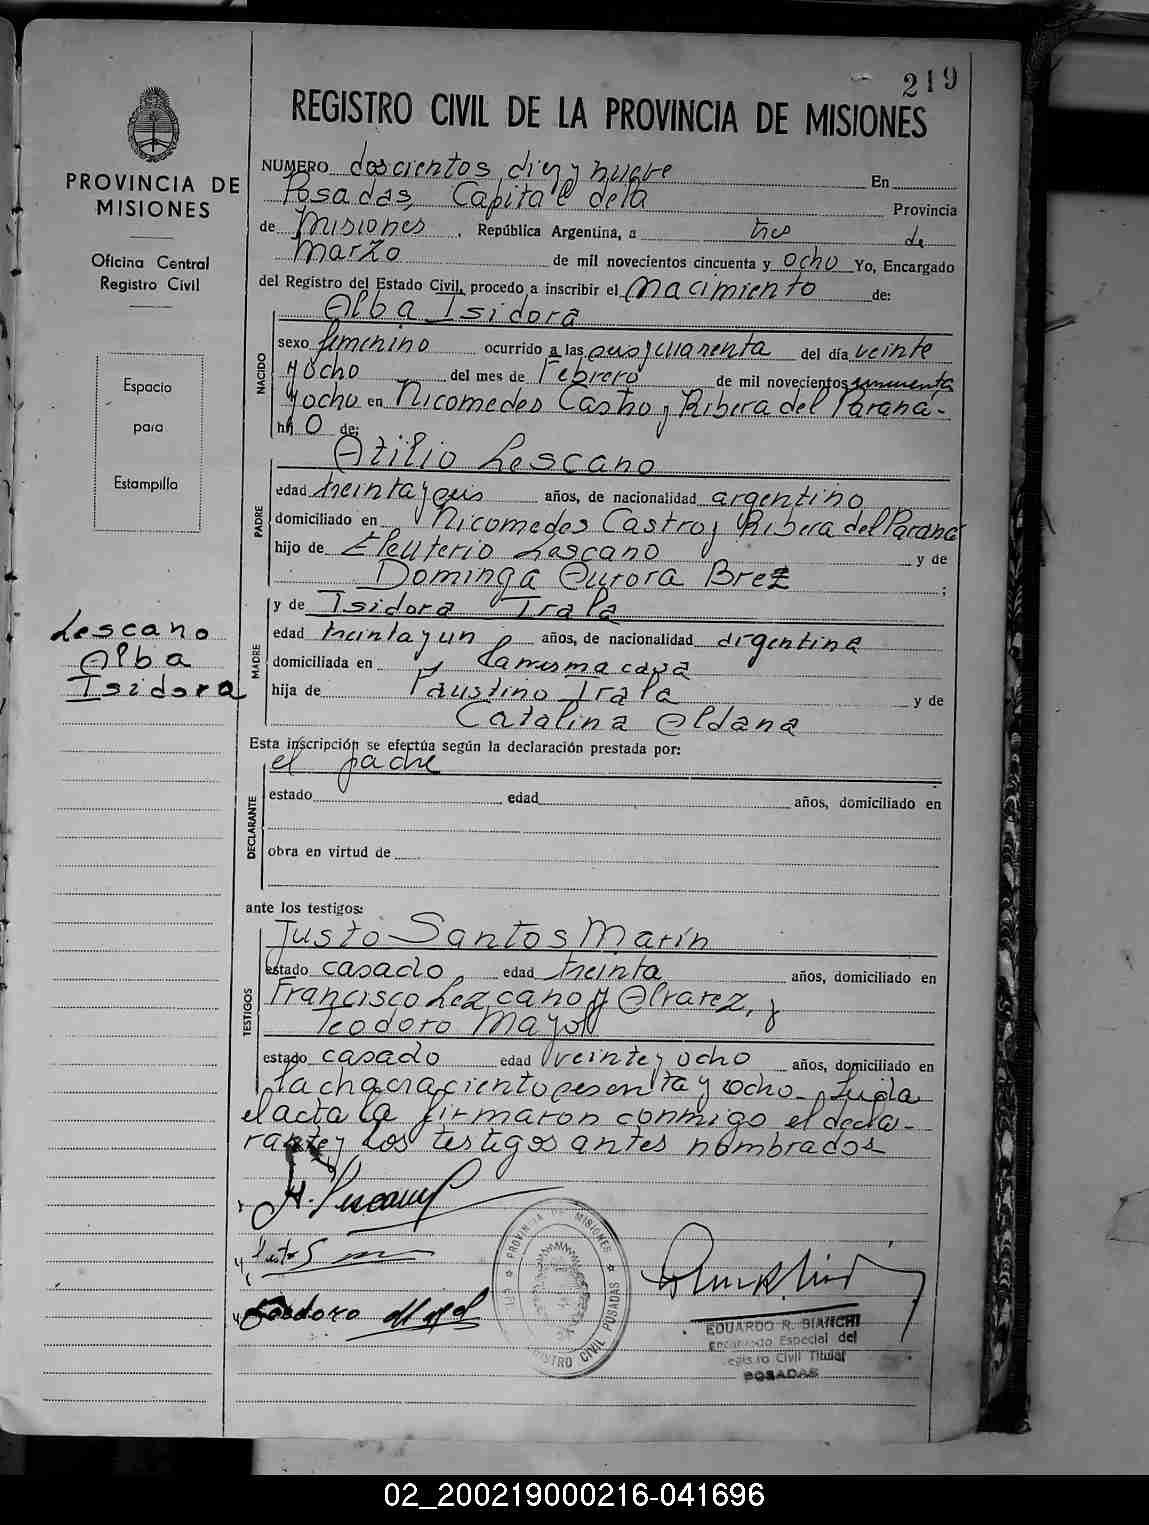 219
REGISTRO CIVIL DE LA PROVINCIA DE MISIONES
PROVINCIA DE
MISIONES
Oficina Central
Registro Civil
Espacio
para
Estampilla
Lescano
Alba
Isidora
NUMERO doscientos diez y nueve En
Posadas, Capital de la Provincia
de Misiones, República Argentina, a tres de
Marzo de mil novecientos cincuenta y ocho Yo, Encargado
del Registro del Estado Civil, procedo a inscribir el nacimiento de:
Alba Isidora
NACIDO
sexo femenino ocurrido a las seis y cuarenta del día veinte
y ocho del mes de Febrero de mil novecientos cincuenta
y ocho en Nicomedes Castro y Ribera del Parana-
hij O de:
Atilio Lescano
PADRE
edad treinta y seis años, de nacionalidad argentino
domiciliado en Nicomedes Castro y Ribera del Parana
hijo de Eleuterio Lescano y de
Dominga Aurora Brez ;
y de Isidora Irala
MADRE
edad treinta y un años, de nacionalidad argentina
domiciliada en la misma casa
hija de Faustino Irala y de
Catalina Aldana
Esta inscripción se efectúa según la declaración prestada por:
el padre
DECLARANTE
estado edad años, domiciliado en
obra en virtud de
ante los testigos:
Justo Santos Marín
TESTIGOS
estado casado, edad treinta años, domiciliado en
Francisco Lezcano y Alvarez, y
Teodoro Mayol
estado casado edad veinte y ocho años, domiciliado en
la chacra ciento sesenta y ocho- Leida
el acta la firmaron conmigo el decla-
rante y los testigos antes nombrados
PROVINCIA DE MISIONES
REGISTRO CIVIL POSADAS
EDUARDO R. BIANCHI
Encargado Especial del
Registro Civil Titular
POSADAS
02_200219000216-041696